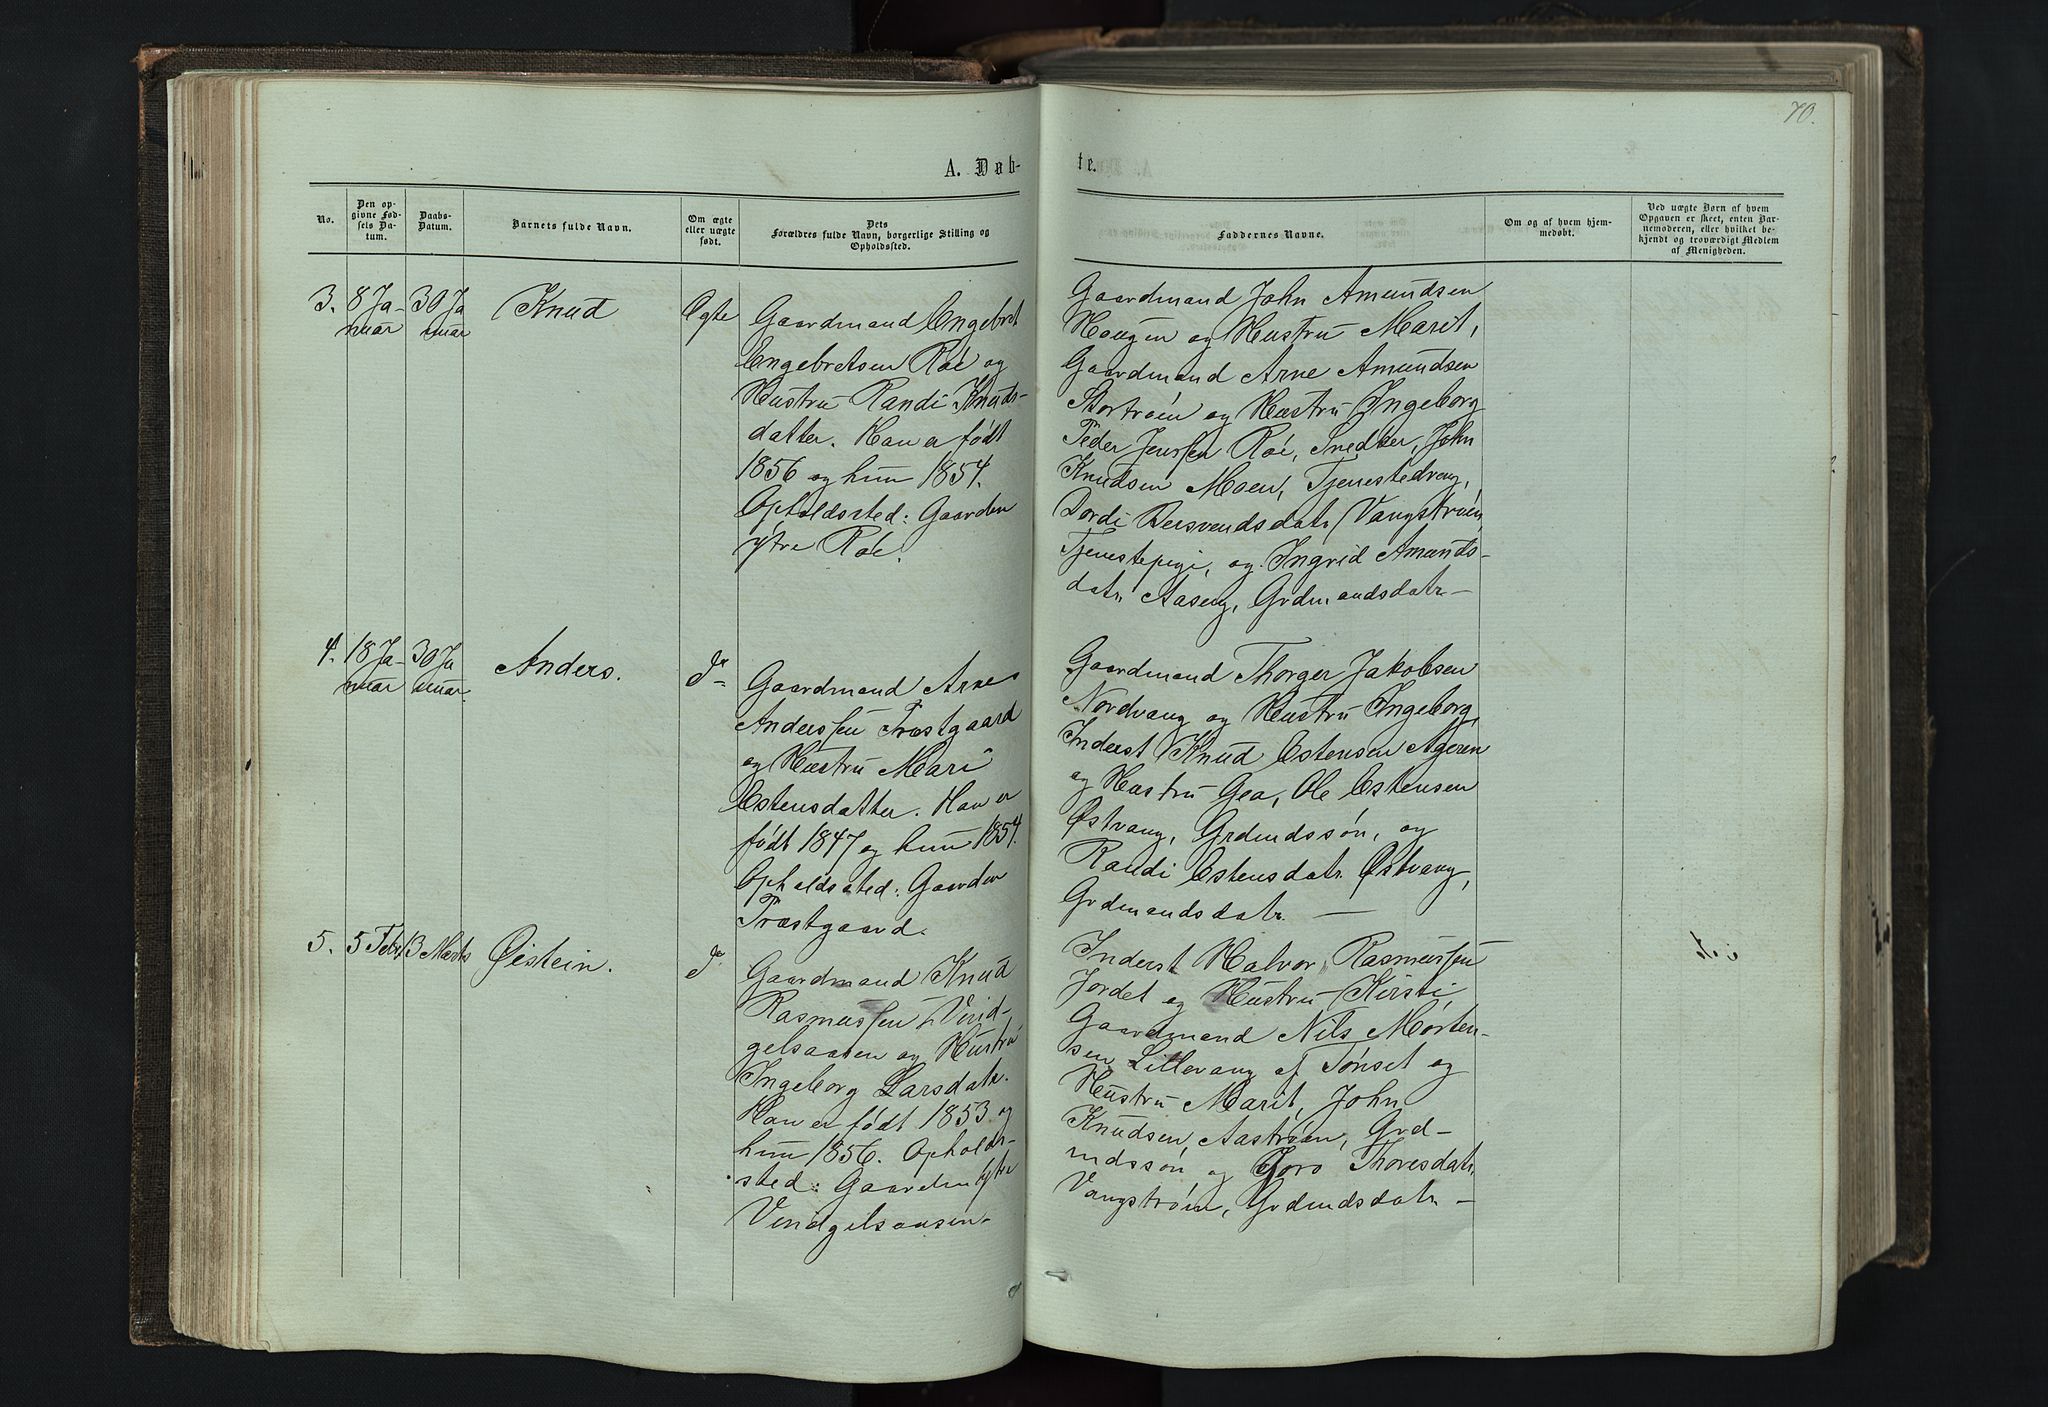 70.
A. Døb-
te.
No.
Den op-
givne Fød-
sels Da-
tum.
Daabs-
Datum.
Barnets fulde Navn.
Om ægte
eller uægte
født.
Dets
Forældres fulde Navn, borgerlige Stilling og
Opholdssted.
Faddernes Navne.
Om og af hvem hjem-
medøbt.
Ved uægte Børn af hvem
Opgaven er skeet, enten Bar-
nemoderen, eller hvilket be-
kjendt og troværdigt Medlem
af Menigheden.
3. 8 Ja-
nuar
30 Ja
nuar
Knud
Ægte
Gaardmand Engebret
Engebretsen Røe og
Hustru Randi Knuds-
datter. Han er født
1856 og hun 1854.
Opholdssted: Gaarden
ytre Røe.
Gaardmand John Amundsen
Haugen og Hustru Marit,
Gaardmand Arne Amundsen
Stortrøen og Hustru Ingeborg
Peder Jenssen Røe, Snedker, John
Knudsen Moen, Tjenestedreng,
Dordi Bersvendsdatr Vangstrøen,
Tjenestepige, og Ingrid Amunds-
datr Aaseng, Grdmandsdatr. —
4. 18 Ja-
nuar
30 Ja
nuar
Anders.
do
Gaardmand Arne
Anderssen Træstgaard
og Hustru Mari
Estensdatter. Han er
født 1847 og hun 1854.
Opholdssted: Gaarden
Træstgaard.
Gaardmand Thorger Jakobsen
Nordvang og Hustru Ingeborg,
Inderst Knud Estensen Ageren
og Hustru Gea, Ole Estensen
Østvang, Grdmdssøn, og
Randi Estensdatr Østvang,
Grdmandsdatr. —
5. 5 Febr. 13 Marts
Øistein.
do
Gaardmand Knud
Rasmussen Vind-
gelsaasen og Hustru
Ingeborg Larsdatr.
Han er født 1853 og
hun 1856. Opholds-
sted: Gaarden ytre
Vindgelsaasen.
Inderst Halvor Rasmussen
Jordet og Hustru Kirsti,
Gaardmand Nils Morten-
sen Lillevang af Tønset og
Hustru Marit, John
Knudsen Aastrøen, Grd-
mdssøn og Goro Thoresdatr
Vangstrøen, Grdmdsdatr. —